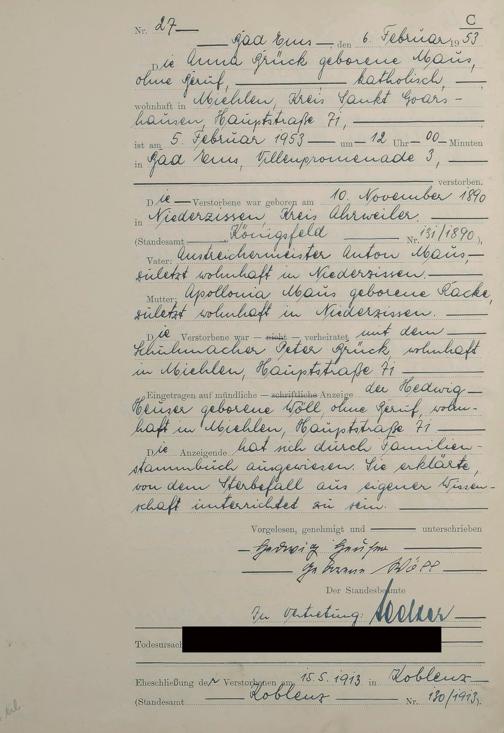 C
Nr. 27
Bad Ems, den 6. Februar 1953
Die Anna Brück geborene Maus,
ohne Beruf, katholisch,
wohnhaft in Miehlen, Kreis Sankt Goars-
hausen, Hauptstraße 71,
ist am 5. Februar 1953 um 12 Uhr 00 Minuten
in Bad Ems, Villenpromenade 3,
verstorben.
Die Verstorbene war geboren am 10. November 1890
in Niederzissen Kreis Ahrweiler.
(Standesamt Königsfeld Nr. 131/1890).
Vater: Anstreichermeister Anton Maus,
zuletzt wohnhaft in Niederzissen.
Mutter: Apollonia Maus geborene Racke,
zuletzt wohnhaft in Niederzissen.
Die Verstorbene war — nicht — verheiratet mit dem
Schuhmacher Peter Brück, wohnhaft
in Miehlen, Hauptstraße 71
Eingetragen auf mündliche — schriftliche Anzeige der Hedwig
Heuser geborene Wöll, ohne Beruf, wohn-
haft in Miehlen, Hauptstraße 71
Die Anzeigende hat sich durch Familien-
stammbuch ausgewiesen. Sie erklärte,
von dem Sterbefall aus eigener Wissen-
schaft unterrichtet zu sein.
Vorgelesen, genehmigt und unterschrieben
Hedwig Heuser
geborene Wöll
Der Standesbeamte
In Vertretung:
Todesursach
Eheschließung der Verstorbenen am 15.5.1913 in Koblenz
(Standesamt Koblenz Nr. 130/1913).